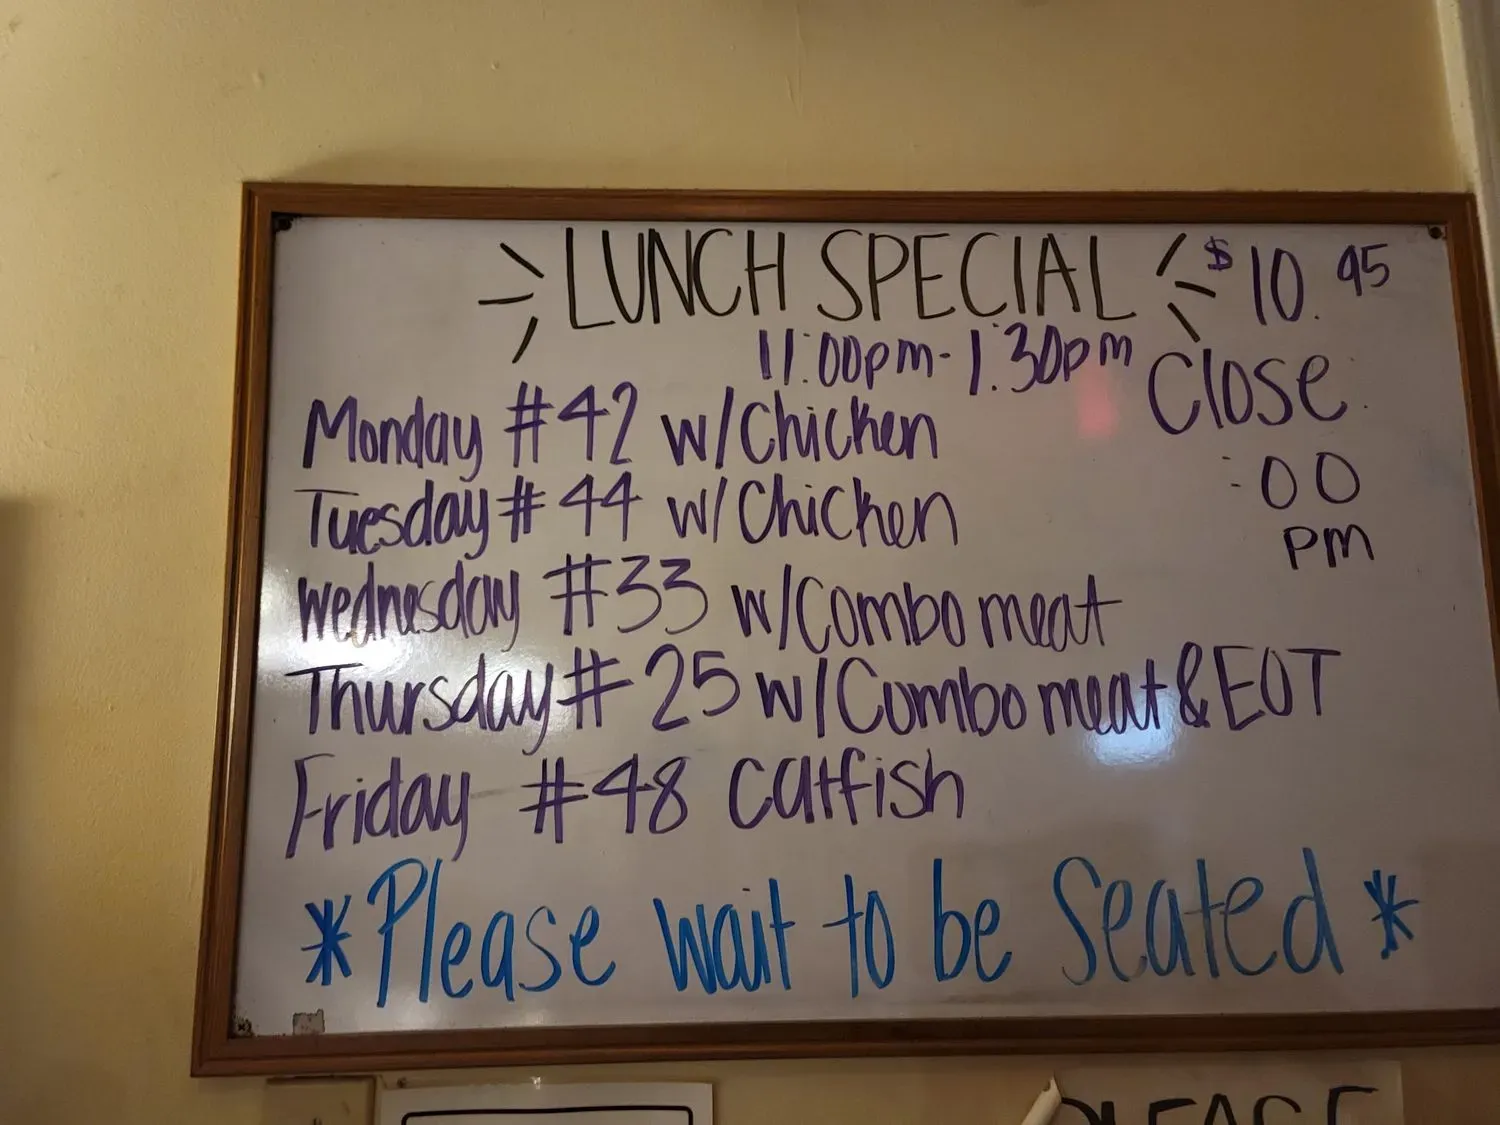 LUNCH SPECIAL $10.95
11:00pm-1:30pm
Close
:00
pm
Monday #42 w/Chicken
Tuesday #44 w/Chicken
Wednesday #33 w/Combo meat
Thursday #25 w/Combo meat & EOT
Friday #48 catfish
*Please wait to be Seated*
PLEASE